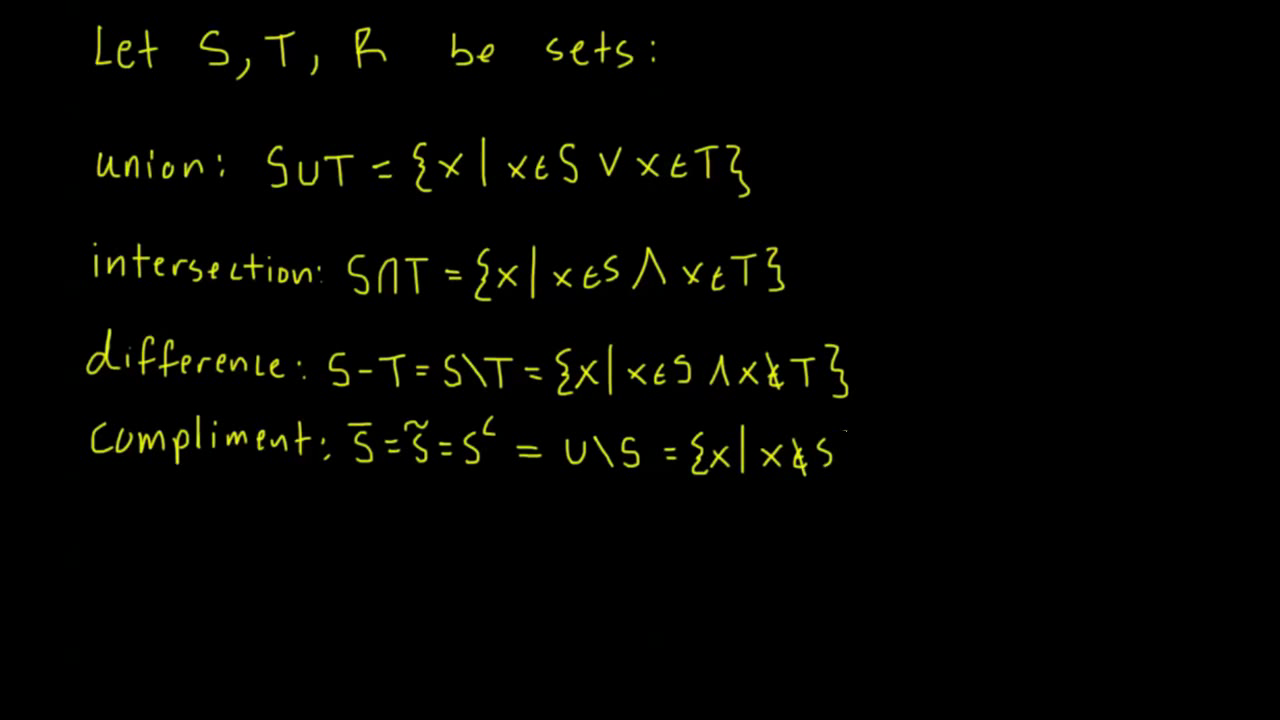 Let S, T, R be sets:
union: S∪T = {x | x∈S ∨ x∈T}
intersection: S∩T = {x | x∈S ∧ x∈T}
difference: S-T = S\T = {x | x∈S ∧ x∉T}
compliment: S̅ = S̃ = Sᶜ = U\S = {x | x∉S